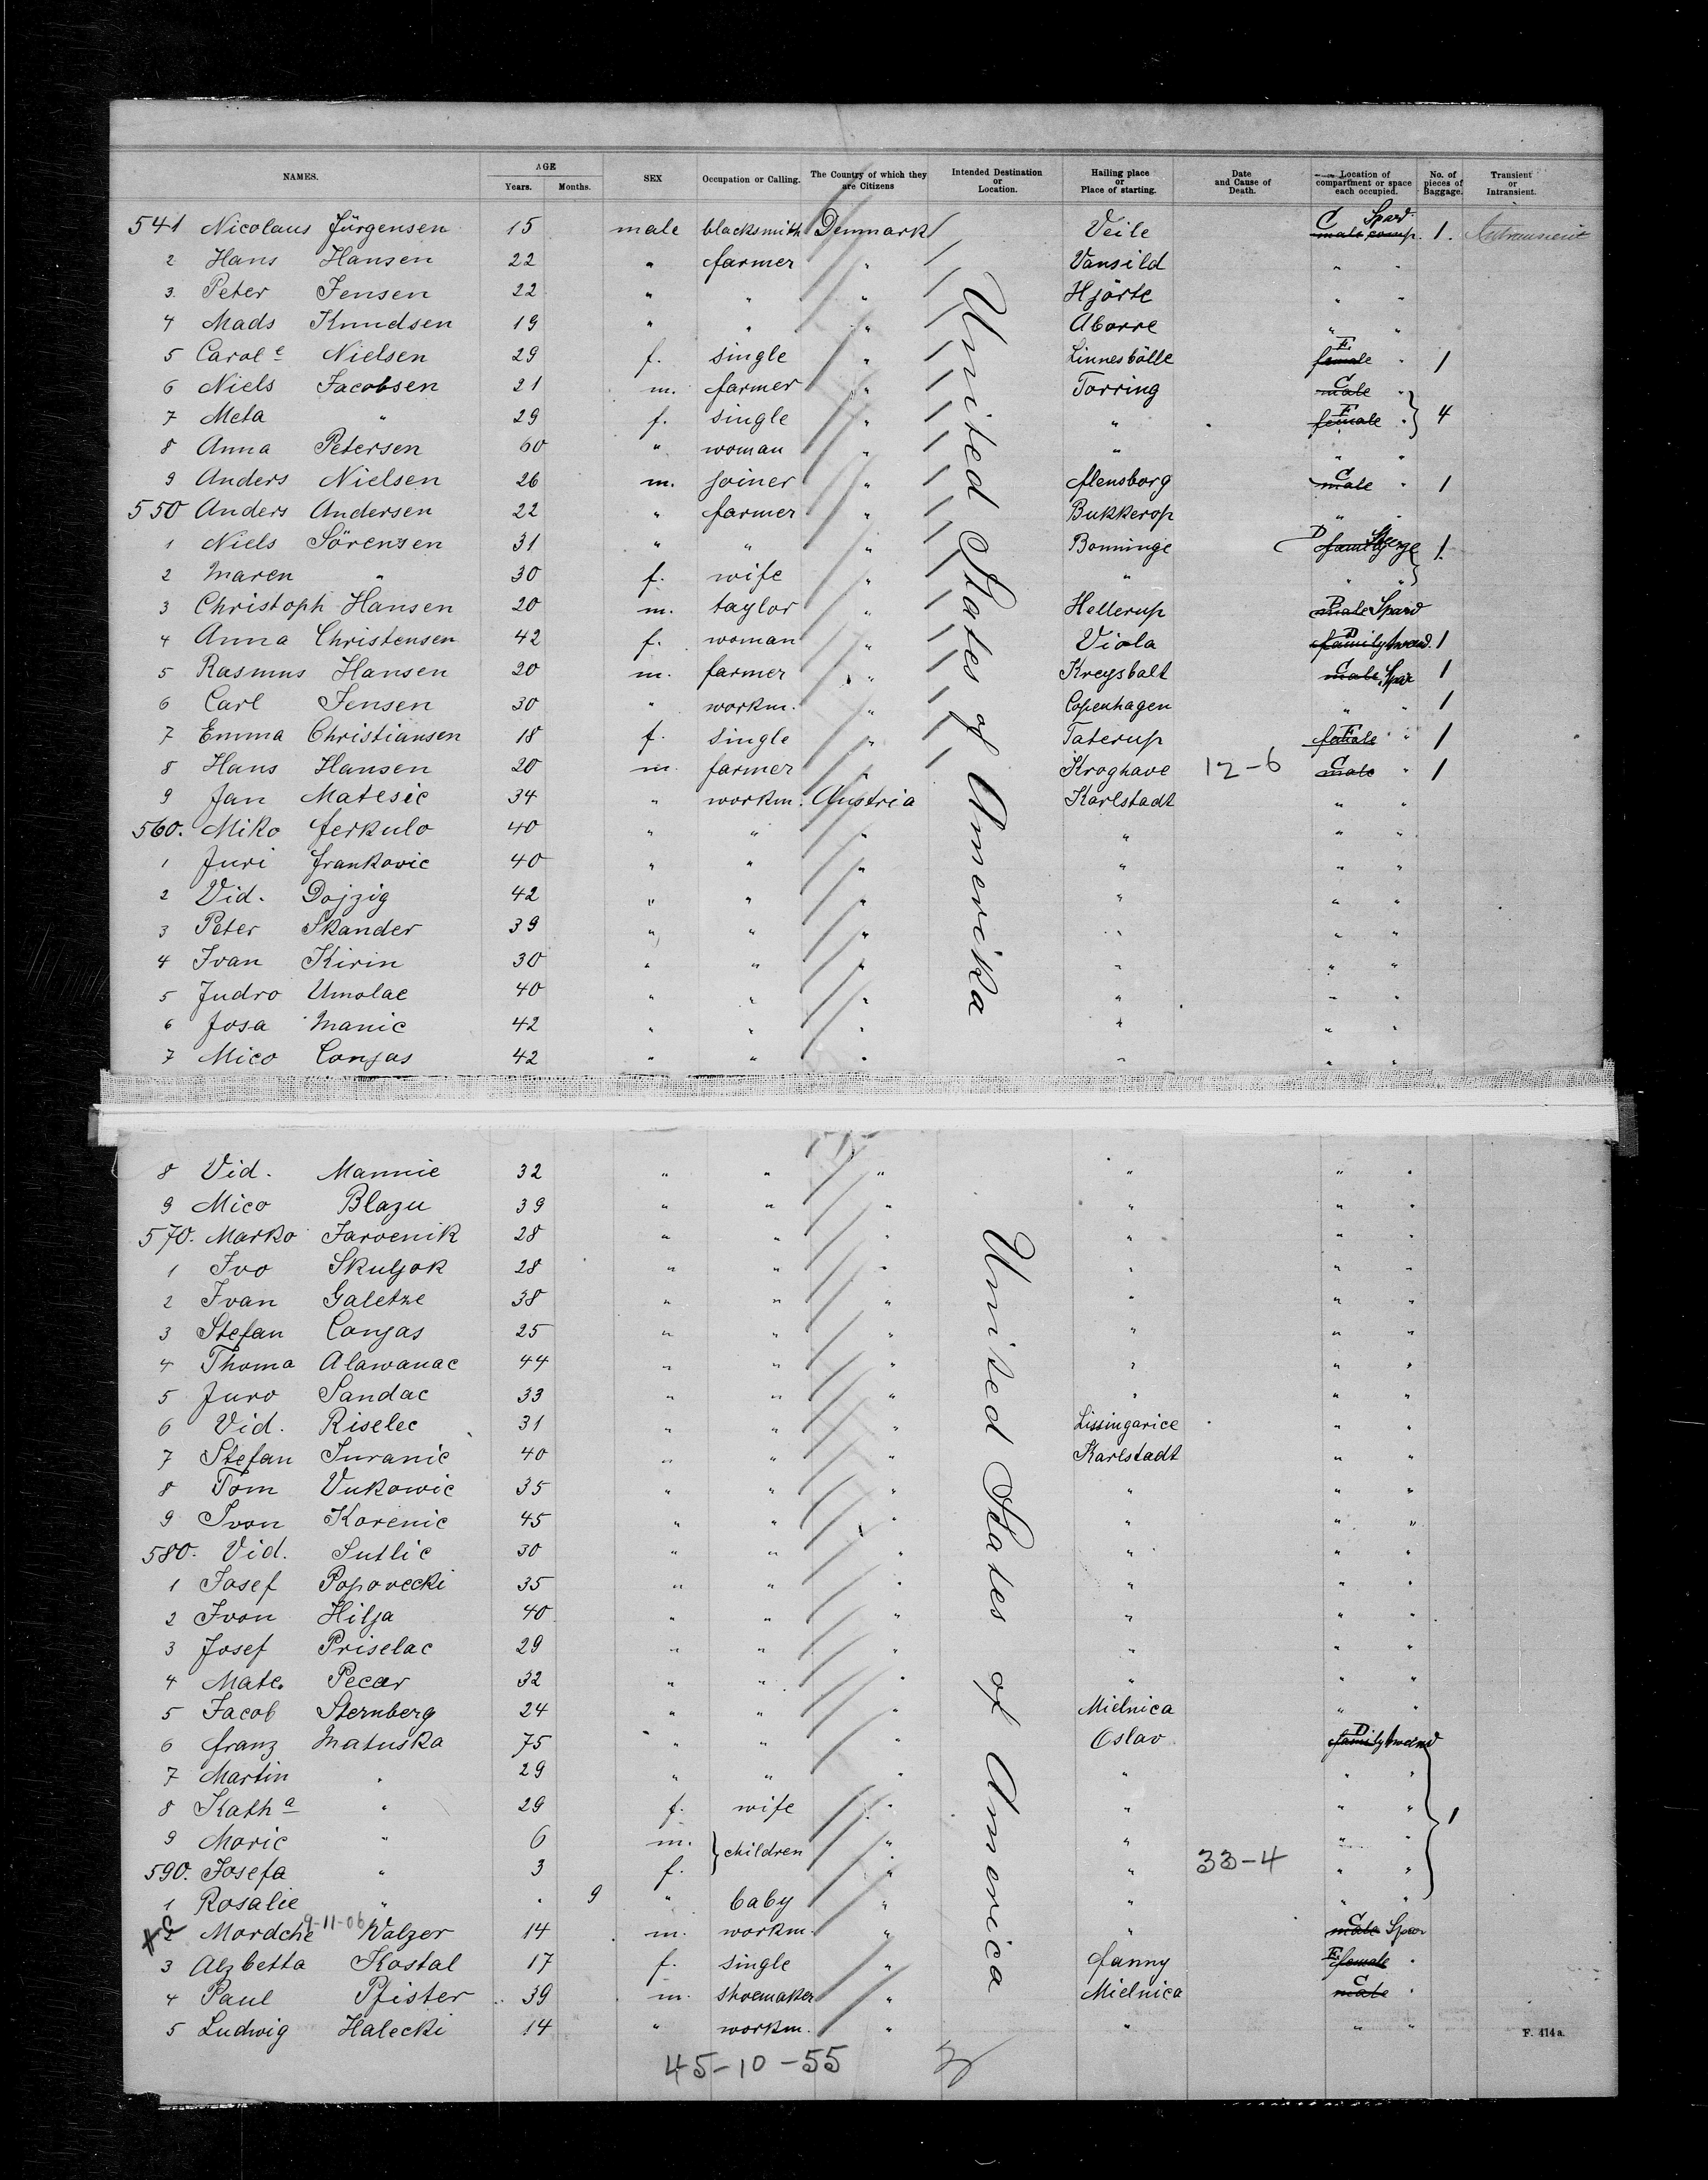 NAMES. AGE Years. Months. SEX Occupation or Calling. The Country of which they are Citizens Intended Destination or Location. Hailing place or Place of starting. Date and Cause of Death. Location of compartment or space each occupied. No. of pieces of Baggage. Transient or Intransient.
541 Nicolaus Jürgensen 15 male blacksmith Denmark Veile C male comp. 1.
2 Hans Hansen 22 " farmer " Vansild " "
3. Peter Jensen 22 " " " Hjörte " "
4 Mads Knudsen 19 " " " Aborre " "
5 Carol e Nielsen 29 f. single " Linnesbölle F. female " 1
6 Niels Jacobsen 21 m. farmer " Torring C male "
7 Meta " 29 f. single " " F female " 4
8 Anna Petersen 60 " woman " " " "
9 Anders Nielsen 26 m. joiner " flensborg C male " 1
550 Anders Andersen 22 " farmer Bukkerop " "
1 Niels Sörensen 31 " " " Bonninge D 1.
2 Maren " 30 f. wife " " " "
3 Christoph Hansen 20 m. taylor " Hellerup male
4 Anna Christensen 42 f. woman " Viola D family 1
5 Rasmus Hansen 20 m. farmer " Kregsbalt C male 1
6 Carl Jensen 30 " workm. " Copenhagen " " 1
7 Emma Christiansen 18 f. single " Taterup F " 1
8 Hans Hansen 20 m farmer " Kroghave 12-6 C male " 1
9 Jan Matesic 34 " workm. Austria Karlstadt " "
560. Miko ferkulo 40 " " " " " "
1 Juri frankovic 40 " " " " " "
2 Vid. Dojzig 42 " " " " " "
3 Peter Skander 39 " " " " " "
4 Ivan Kirin 30 " " " " " "
5 Judro Umolac 40 " " " " " "
6 Josa Manic 42 " " " " " "
7 Mico Conjas 42 " " " " " "
United States of Amerika
8 Vid. Mannie 32 " " " " " "
9 Mico Blazu 39 " " " " " "
570. Marko Jarvenik 28 " " " " " "
1 Ivo Skuljak 28 " " " " " "
2 Ivan Galetze 38 " " " " " "
3 Stefan Conjas 25 " " " " " "
4 Thoma Alawanac 44 " " " " " "
5 Juro Sandac 33 " " " " " "
6 Vid. Riselec 31 " " " Lissingarice " "
7 Stefan Juranic 40 " " " Karlstadt " "
8 Tom Vukowic 35 " " " " " "
9 Ivon Korenic 45 " " " " " "
580. Vid. Sutlic 30 " " " " " "
1 Josef Popovecki 35 " " " " " "
2 Ivon Hilja 40 " " " " " "
3 Josef Priselac 29 " " " " " "
4 Mate. Pecar 32 " " " " " "
5 Jacob Sternberg 24 " " " Mielnica " "
6 franz Matuska 75 " " " Oslav D. family
7 Martin " 29 " " " " " "
8 Kath a " 29 f. wife " " " " 1
9 Moric " 6 m. children " " " "
590. Josefa " 3 f. " " 33-4 " "
1 Rosalie " " 9 " baby " " " "
X 2 Mordche 9-11-06 Walzer 14 m. workm. " " C male
3 Alzbetta Kostal 17 f. single " fanny F. female "
4 Paul Pfister 39 m. shoemaker " Mielnica C male "
5 Ludwig Halecki 14 " workm. " " " "
United States of America
F. 414 a.
45-10-55